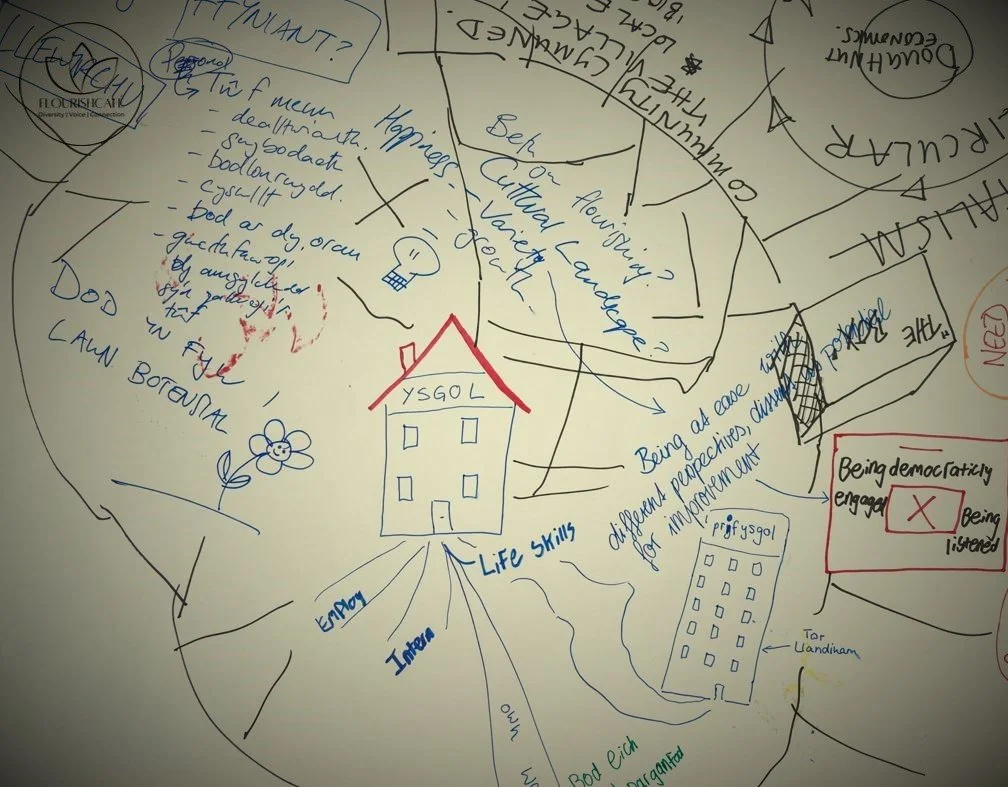 FFYNIANT?
LLEWYRCHU
FLOURISHCAFE
Diversity | Voice | Connection
Personol
Twf mewn
- dealltwriaeth.
- gwybodaeth
- bodlonrwydd.
- cyswllt
- bod ar dy, oran
twf
DOD YN FYW
LAWN BOTENSIAL
Happiness -
- Variety
- growth
Beth yw flourishing?
Cultural Landscape?
CYMUNED
COMMUNITY
THE VILLAGE
* LOCAL
DOUGHNUT
ECONOMICS.
CIRCULAR
ALISM
"THE
NEED
YSGOL
Being at ease with
different perspectives, dissent as potential
for improvement
Being democraticly
engaged
X
Being
listened
prifysgol
Tŵr
Llandinam
Life Skills
Employ
Intern
own
Bod eich